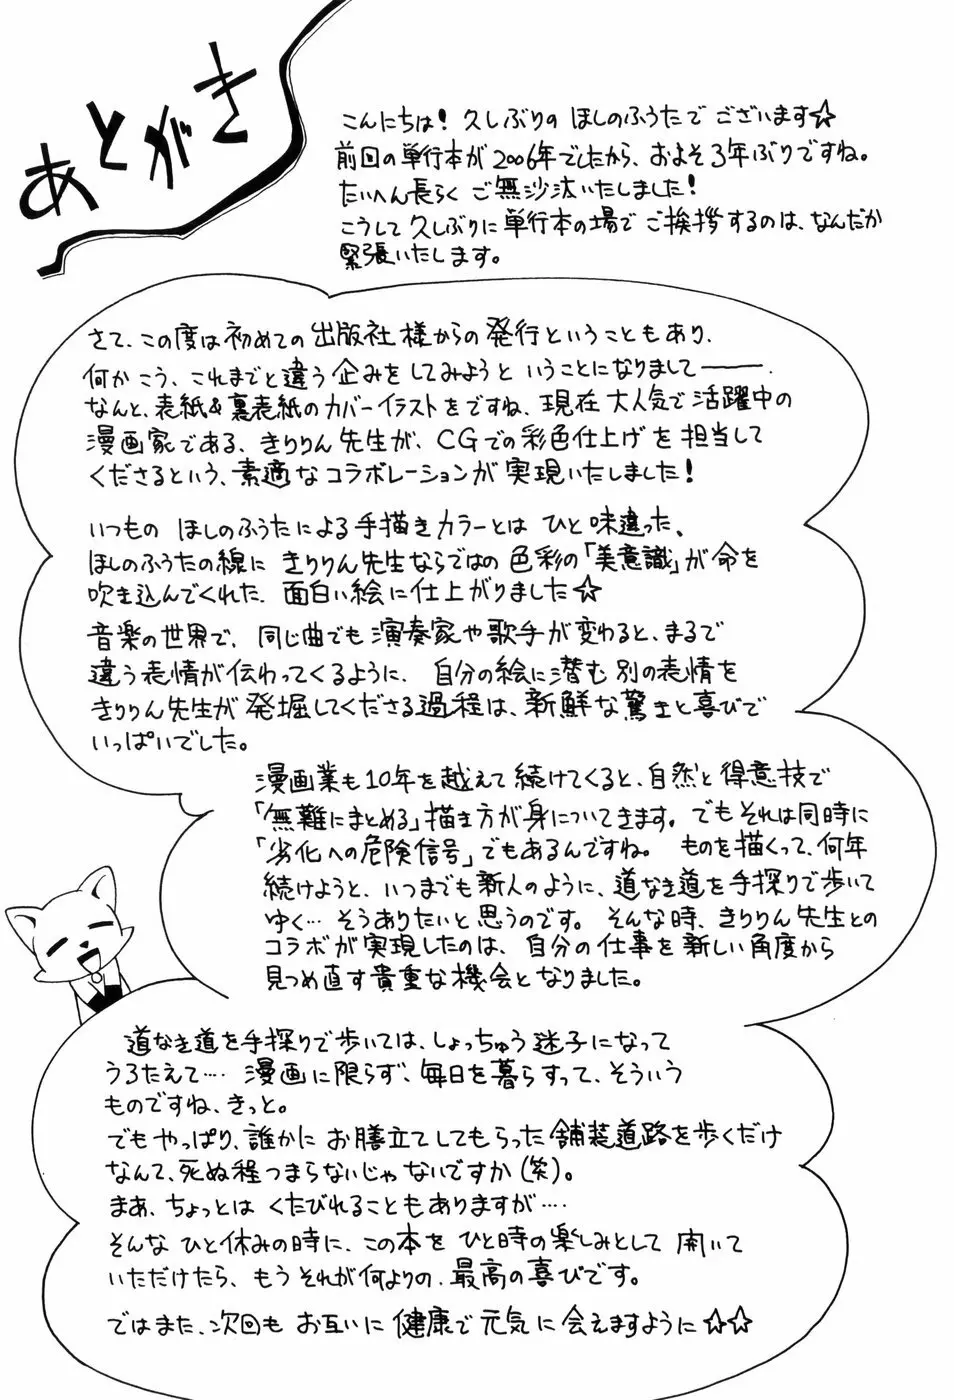 あとがき
こんにちは！久しぶりの ほしのふうたで ございます☆
前回の単行本が2006年でしたから、およそ3年ぶりですね。
たいへん長らく ご無沙汰いたしました！
こうして久しぶりに単行本の場で ご挨拶するのは、なんだか
緊張いたします。
さて、この度は初めての出版社様からの発行ということもあり、
何かこう、これまでと違う企みをしてみようと いうことになりまして―――.
なんと、表紙&裏表紙のカバーイラストをですね、現在大人気で活躍中の
漫画家である、きりりん先生が、CGでの彩色仕上げを担当して
くださるという、素適なコラボレーションが実現いたしました！
いつもの ほしのふうたによる手描きカラーとは ひと味違った、
ほしのふうたの線に きりりん先生ならではの 色彩の「美意識」が命を
吹き込んでくれた、面白い絵に仕上がりました☆
音楽の世界で、同じ曲でも演奏家や歌手が変わると、まるで
違う表情が伝わってくるように、自分の絵に潜む別の表情を
きりりん先生が 発掘してくださる過程は、新鮮な驚きと喜びで
いっぱいでした。
漫画業も10年を越えて続けてくると、自然と得意技で
「無難にまとめる」描き方が身についてきます。でもそれは同時に
「劣化への危険信号」でもあるんですね。 ものを描くって、何年
続けようと、いつまでも新人のように、道なき道を手探りで歩いて
ゆく… そうありたいと思うのです。 そんな時、きりりん先生との
コラボが実現したのは、自分の仕事を新しい角度から
見つめ直す貴重な機会となりました。
道なき道を手探りで歩いては、しょっちゅう迷子になって
うろたえて…. 漫画に限らず、毎日を暮らすって、そういう
ものですね、きっと。
でもやっぱり、誰かに お膳立てしてもらった舗装道路を歩くだけ
なんて、死ぬ程つまらないじゃないですか(笑)。
まあ、ちょっとは くたびれることもありますが….
そんな ひと休みの時に、この本を ひと時の楽しみとして 開いて
いただけたら、もう それが何よりの、最高の喜びです。
ではまた、次回も お互いに 健康で元気に会えますように☆☆